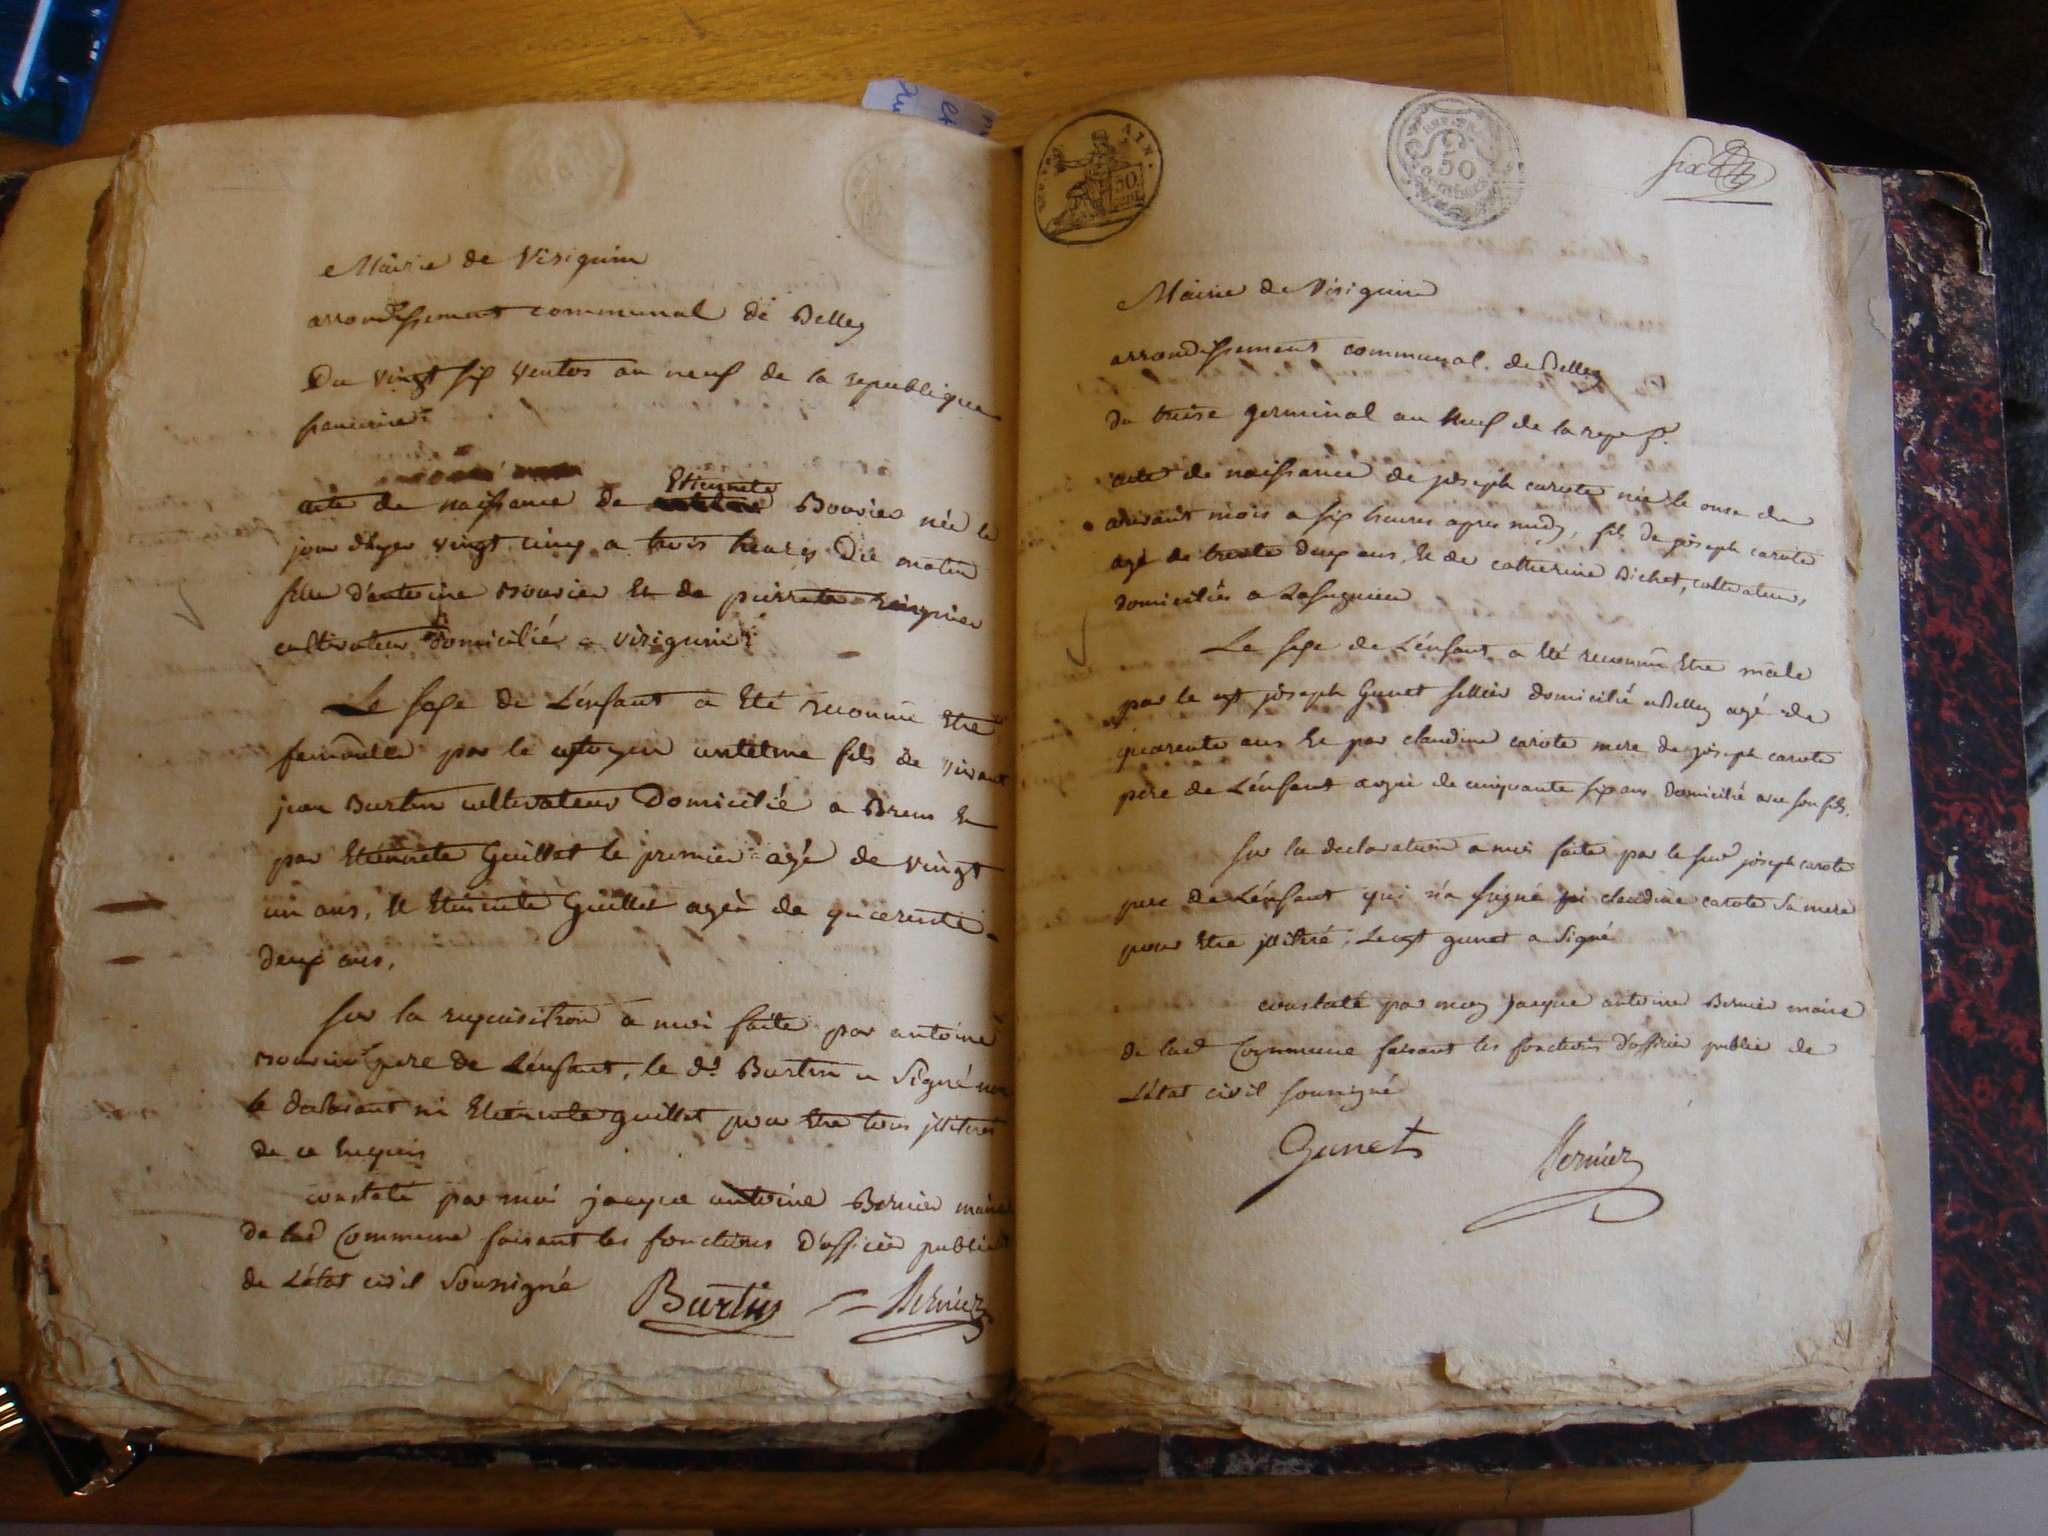 Mairie de Virignin
arrondissement communal de Belley
Du vingt six ventos an neuf de la republique
francaise
acte de naissance de Etiennete Bouvier née le
jour d'hyer vingt cinq a trois heures du matin
fille d'antoine Bouvier et de pierrete
cultivateur domicilié a virignin
Le sexe de L'énfant a été reconnu etre
femmelle par le citoyen antelme fils de vivant
jean Burtin cultivateur Domicilié a Brens et
par Etiennete Guillet le premier agé de vingt
un ans, et Etiennete Guillet ageé de quarente
deux ans,
sur la requisition a moi faite par antoine
Bouvier pere de L'énfant, le dt Burtin a signé non
le declarant ni Etiennete guillet pour etre tous jlliteres
de ce enquis
constaté par moi jacque antoine Bernier maire
de lad Commune faisant les fonctions d'officier public
de L'état civil soussigné
Burtin Bernier
AIN.
50
cent
50
centimes
six
Mairie de Virignin
arrondissement communal de Belley
du treise germinal an neuf de la rep f.
acte de naissance de joseph carote née le onse du
courant mois a six heures apres midy, fils de joseph carote
agé de trente deux ans, et de catherine Bichet, cultivateurs,
domiciliés a
Le sexe de L'énfant a été reconnu etre mâle
par le cyt joseph Gunet sellier domicilié a Belley agé de
quarente ans et par claudine carote mere de joseph carote
pere de L'énfant ageé de cinquante six ans domicilié avec son fils.
sur la declaration a moi faite par le susd joseph carote
pere de L'énfant qui n'a signé ni claudine carote sa mere
pour etre jlliteré, Le cyt gunet a signé
constaté par moy jacque antoine Bernier maire
de lad Commune faisant les fonctions d'officier public de
L'état civil soussigné
Gunet Bernier